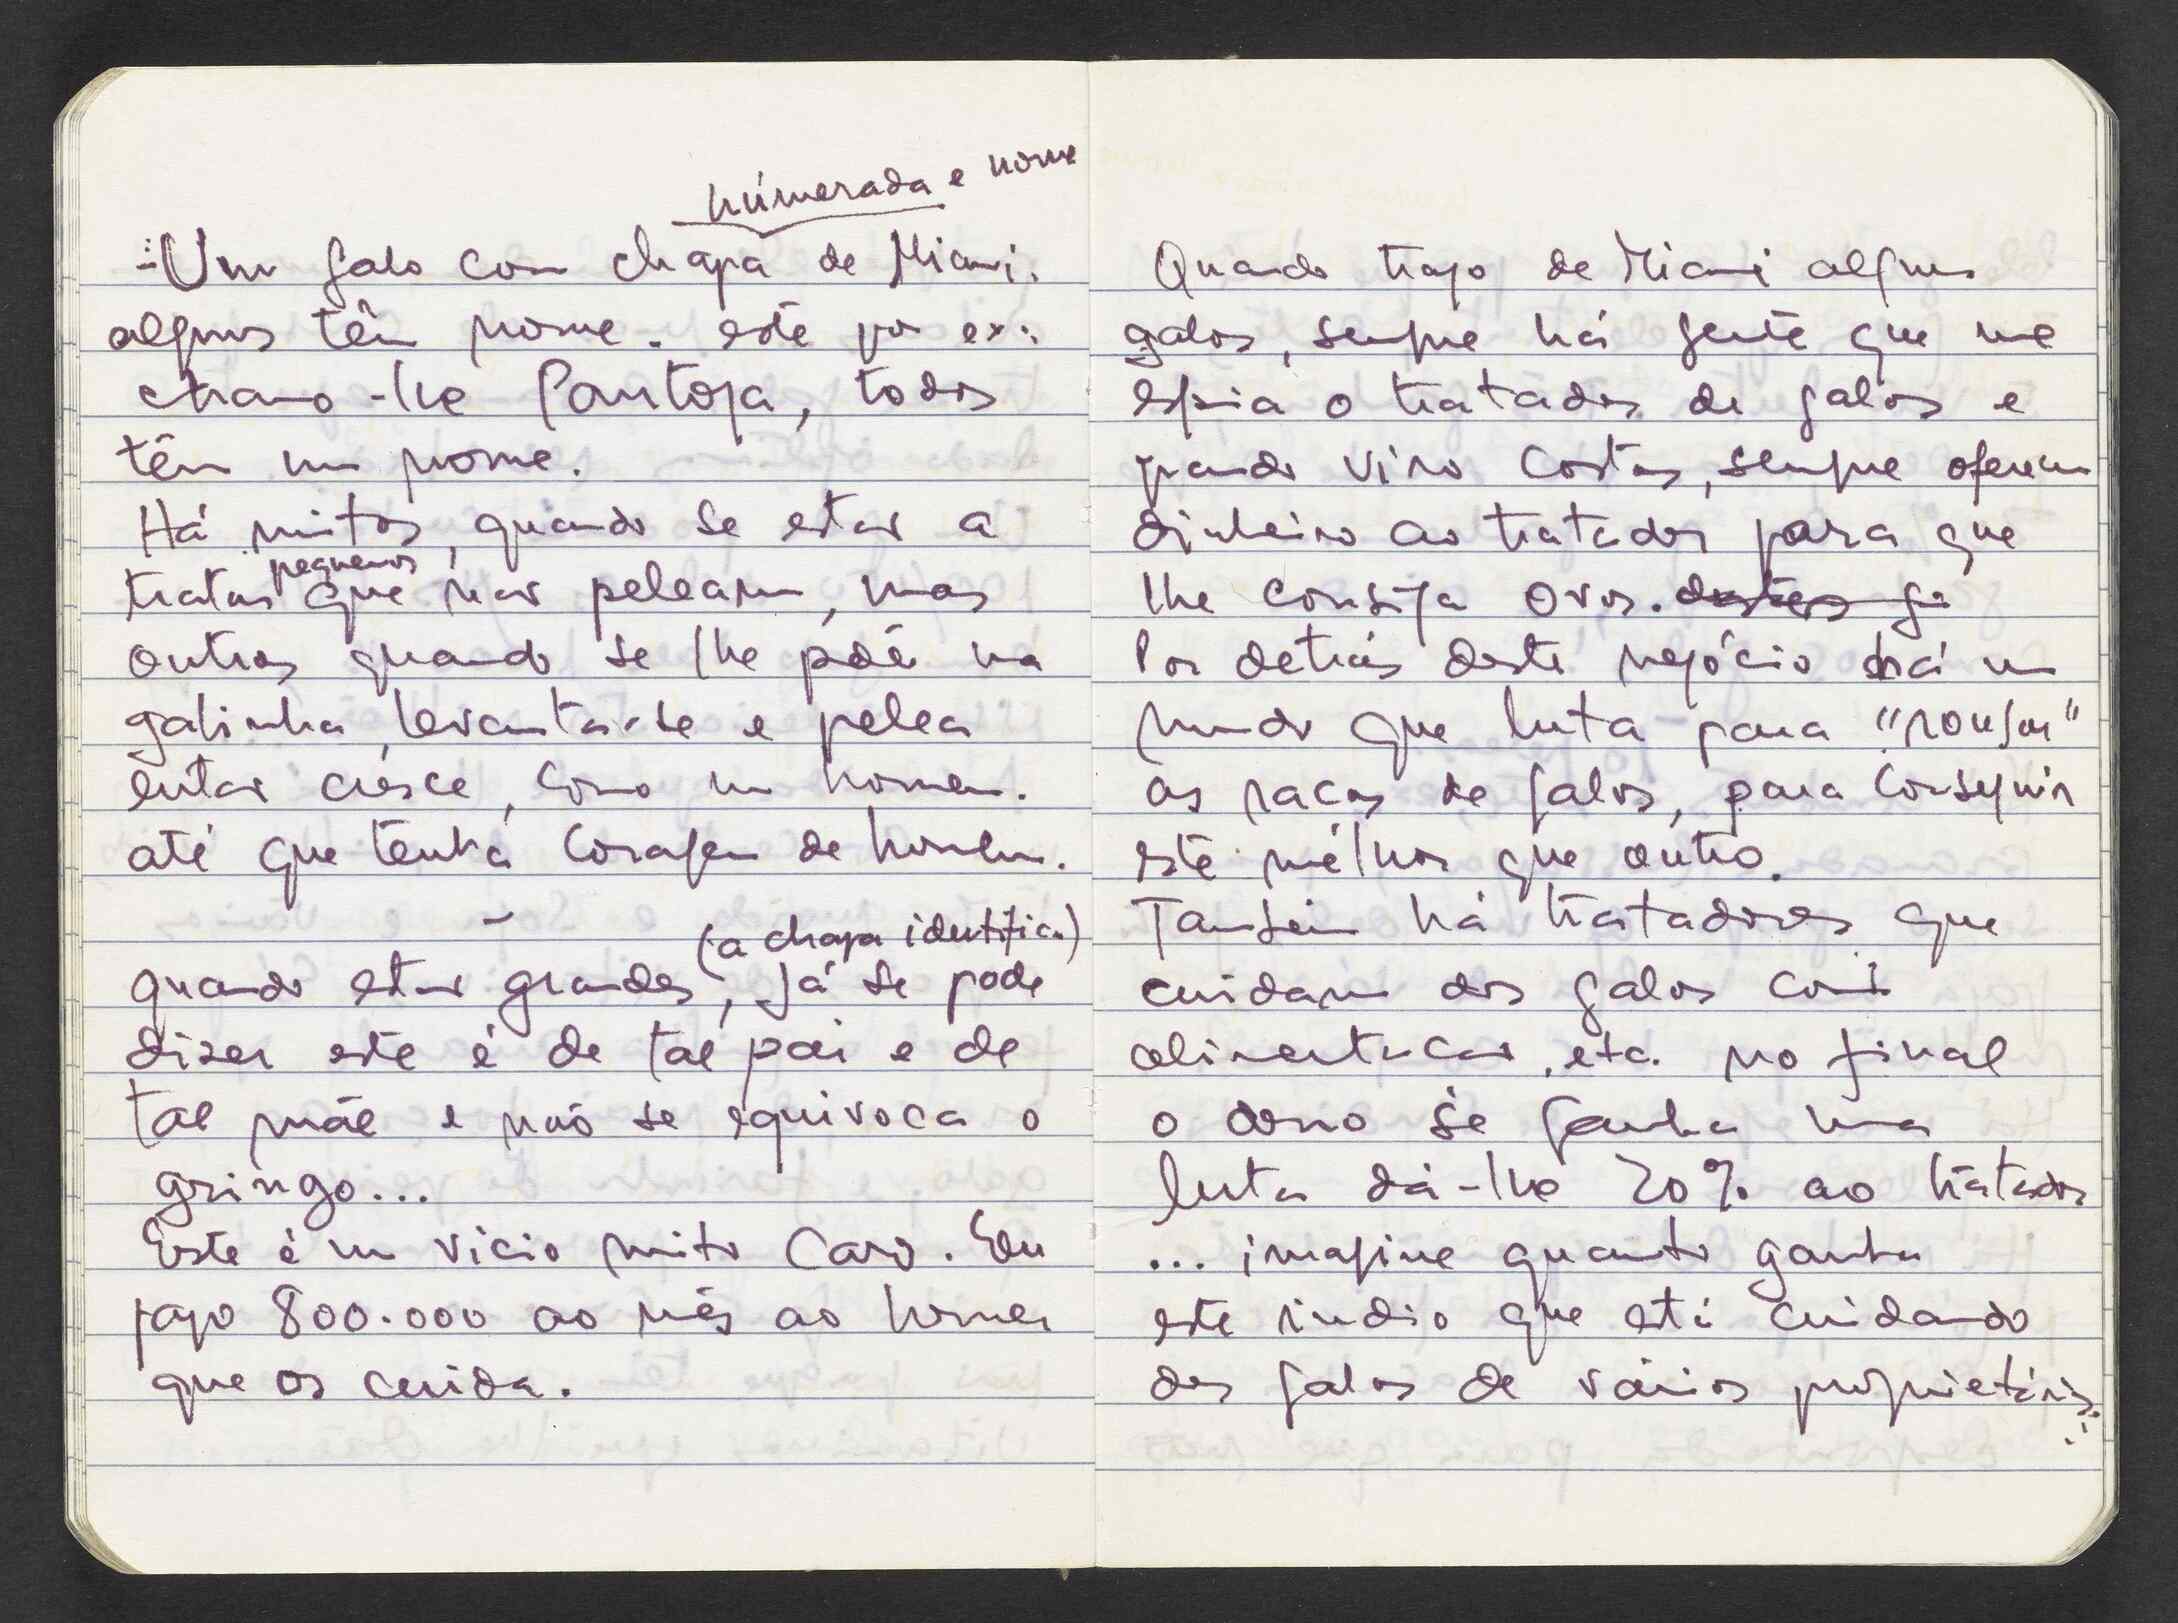 númerada e nome
Um galo com chapa de Miami.
alguns têm nome. este por ex:
chamo-lhe Pantoja, todos
têm um nome.
Há muitos, quando se estão a
pequenos
tratar que não peleam, mas
outros quando se lhe põe na
galinha, levanta-se e pelea
então cresce, como um homem.
até que tenha coragem de homem.
–
(a chapa identifica)
quando estão grandes, já se pode
dizer este é de tal pai e de
tal mãe e não se equivoca o
gringo...
Este é um vicio muito caro. Eu
pago 800.000 ao mês ao homem
que os cuida.
Quando trago de Miami alguns
galos, sempre há gente que me
espia o tratador de galos e
quando viro costas, sempre oferecem
dinheiro ao tratador para que
lhe consiga ovos. destes ga
Por detrás deste negócio há um
mundo que luta para "roubar"
as racas de galos, para conseguir
este mélhor que outro.
Também há tratadores que
cuidam dos galos com
alimentacão, etc. no final
o dono se ganha uma
luta dá-lhe 20% ao tratador
... imagine quanto ganha
este indio que está cuidando
dos galos de vários proprietários.